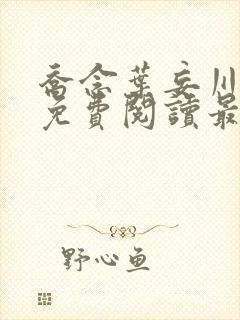 喬念葉妄川
免費閱讀最
野心鱼